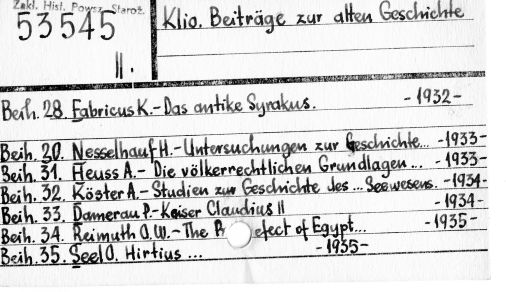 Zakł. Hist. Powsz. Staroż.
53545
II.
Klio. Beiträge zur alten Geschichte
Beih. 28. Fabricus K.-Das antike Syrakus. -1932-
Beih. 30. Nesselhauf H.-Untersuchungen zur Geschichte... -1933-
Beih. 31. Heuss A.- Die völkerrechtlichen Grundlagen... -1933-
Beih. 32. Köster A.-Studien zur Geschichte des ... Seewesens. -1934-
Beih. 33. Damerau P.-Kaiser Claudius II -1934-
Beih. 34. Reimuth O.W.-The P efect of Egypt... -1935-
Beih. 35. Seel O. Hirtius ... -1935-